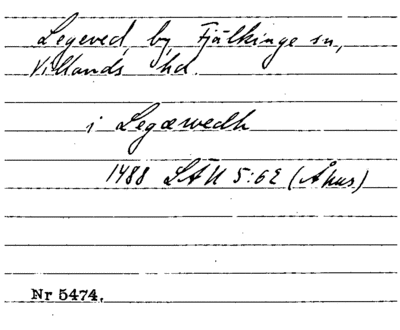 Legeved, by, Fjälkinge sn,
Villands hd.
i Legæwedh
1488 LÄU 5:62 (Åhus)
Nr 5474.